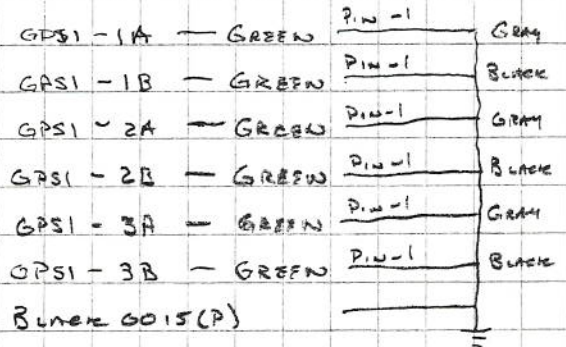 GPSI - 1A — GREEN PIN -1 GRAY
GPSI - 1B — GREEN PIN -1 BLACK
GPSI - 2A — GREEN PIN -1 GRAY
GPSI - 2B — GREEN PIN -1 BLACK
GPSI - 3A — GREEN PIN -1 GRAY
GPSI - 3B — GREEN PIN -1 BLACK
BLACK GO15(P)